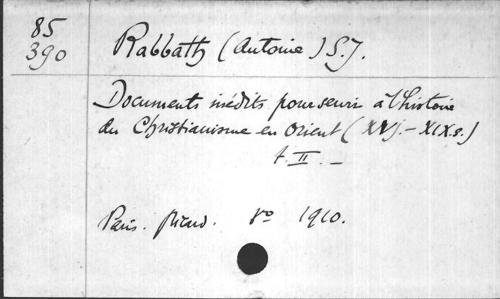 85
390
Rabbath (Antoine) S.J.
Documents inédits pour servir à l'histoire
du Christianisme en Orient (XVI.-XIX s.)
t. II. -
Paris. Picard. 8º 1910.